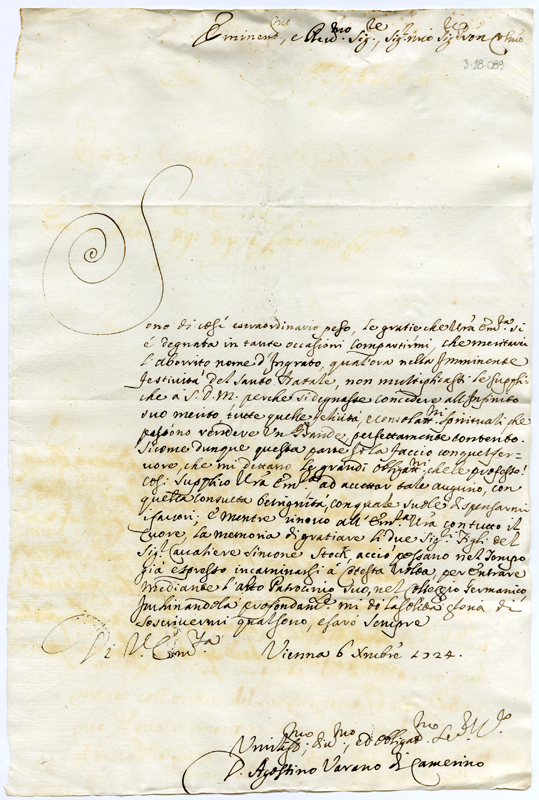 Eminen.mo, e Reu.mo Sig.re, Sig. mio
3-28-089
Sono di così estraordinario peso, le gratie che Vr̃a Em.za si
è degnata in tante occasioni compartirmi, che meritarei
l'aborrito nome d'Ingrato, qual'ora nella Imminente
festiuità del Santo Natale, non multiplicassi le suppli-
che à S. D. M. perche si degnasse concedere all'Infinito
suo merito tutte quelle felicità, e consolat.ni spirituali che
possono rendere Un Grande, perfettamente contento.
Sicome dunque questa parte Io la faccio con quel fer-
uore, che mi dettano le grandi obligat.ni che le professo:
Così supplico Vr̃a Em.za ad accettar tale augurio, con
quella consueta benignità, con quale suole dispensarmi
i fauori: E mentre rinouo all'Em.za Vr̃a con tutto il
Cuore, la memoria di gratiare li due Sig.ri figli del
Sig.r Caualiere Simone Stock, acciò possano nel tempo
già espresso incaminarsi à Cotesta Volta per entrare
mediante l'alto Patrocinio suo, nel Collegio Germanico,
Inchinandola profondam.te mi dò la solita gloria di
soscriuermi qual sono, e sarò sempre
Di V. Em.za Vienna 6 Xmbre 1724.
Vmiliss.mo diu.mo, ed obligat.mo Se.
D. Agostino Varano di Camerino